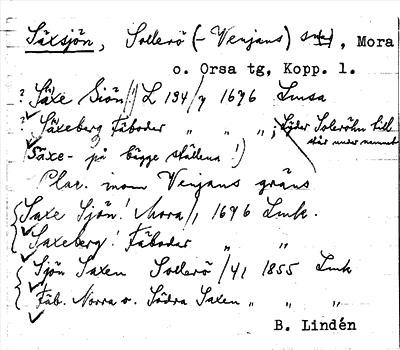 Säxsjön, Sollerö (- Venjans) snr, Mora
o. Orsa tg, Kopp. l.
? Säxe Siön /!/ L 134/7 1696 Lmsa
? Säxeberg Fäboder " " "; lyder Soleröhn till
står under numret
Säxe- på bägge ställena!)
Plac. inom Venjans gräns
Saxe Sjön! Mora/1 1696 Lmk.
Saxeberg! Fäboder " "
Sjön Saxen Sollerö /41 1855 Lmk
Fäb. Norra o. Södra Saxen " " "
B. Lindén